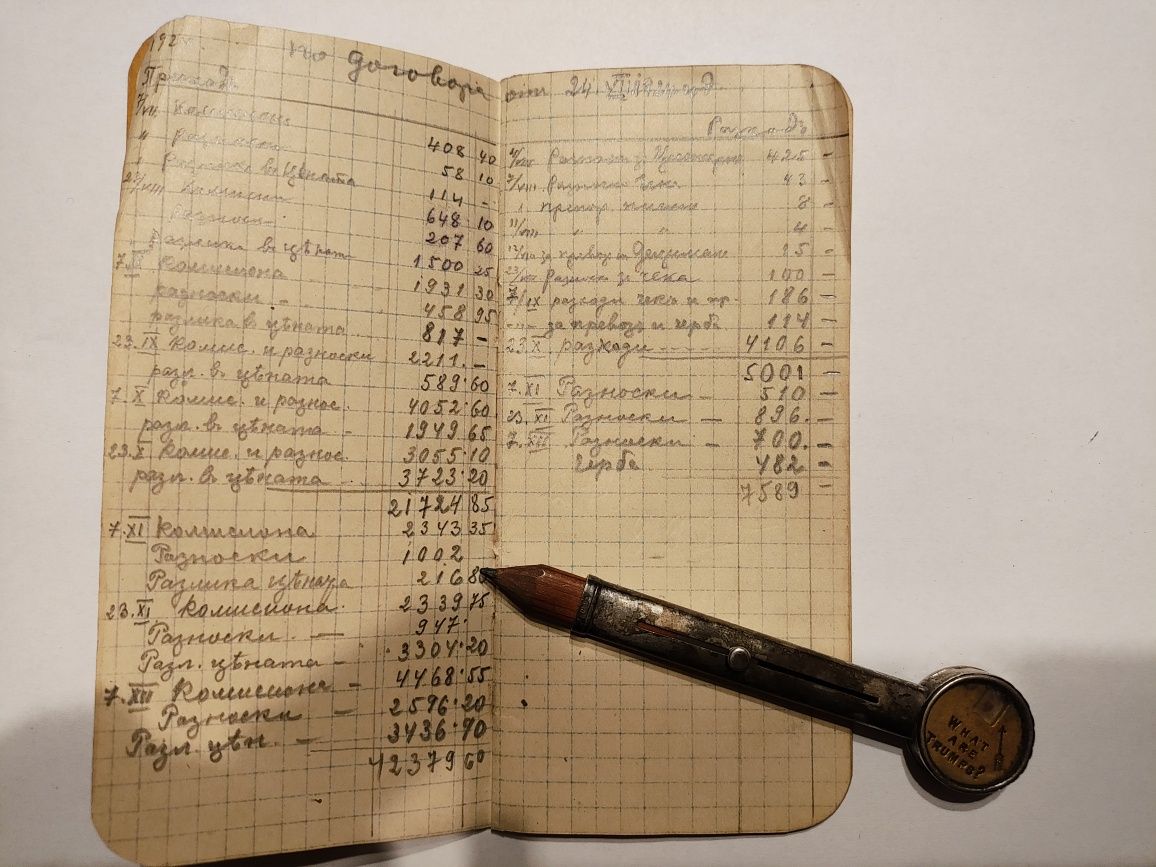 192
по договора
Приходъ
7/VIII Комисиони
" разноски 408 40
" Разлика въ цената 58 10
23/VIII Комисиони 114 -
разноски 648 10
" разлика въ цѣнат 207 60
7.IX Комисиона 1500 25
разноски - 1931 30
разлика въ цѣната 458 95
817 -
23.IX Комис. и разноски 2211.-
разл. въ цѣната 589.60
7.X Комис. и разнос. 4052.60
разл. въ цѣната - 1949 65
23.X Комис. и разнос. 3055.10
разл. въ цѣната 3723.20
21724 85
7.XI Комисиона 2343 35
Разноски 1002
Разлика 216 80
23.XI Комисиона 2339 75
Разноски. - 947.
Разл. цѣната - 3304.20
7.XII Комисиона - 4468.55
Разноски - 2596.20
Разл. цѣн. - 3436.70
42379 60
от 24
Разходъ
425 -
7/VIII 43 -
" 8 -
11/VIII " " 4 -
за 15 -
разлики и чека 100 -
7/IX разходи чекъ и 186 -
за превозъ и герба 114 -
23.X. разходи 4106 -
5001 -
7.XI Разноски - 510 -
23.XI Разноски - 896.-
7.XII Разноски - 700.-
герба 482 -
7589 -
WHAT
ARE
TRUMPS?